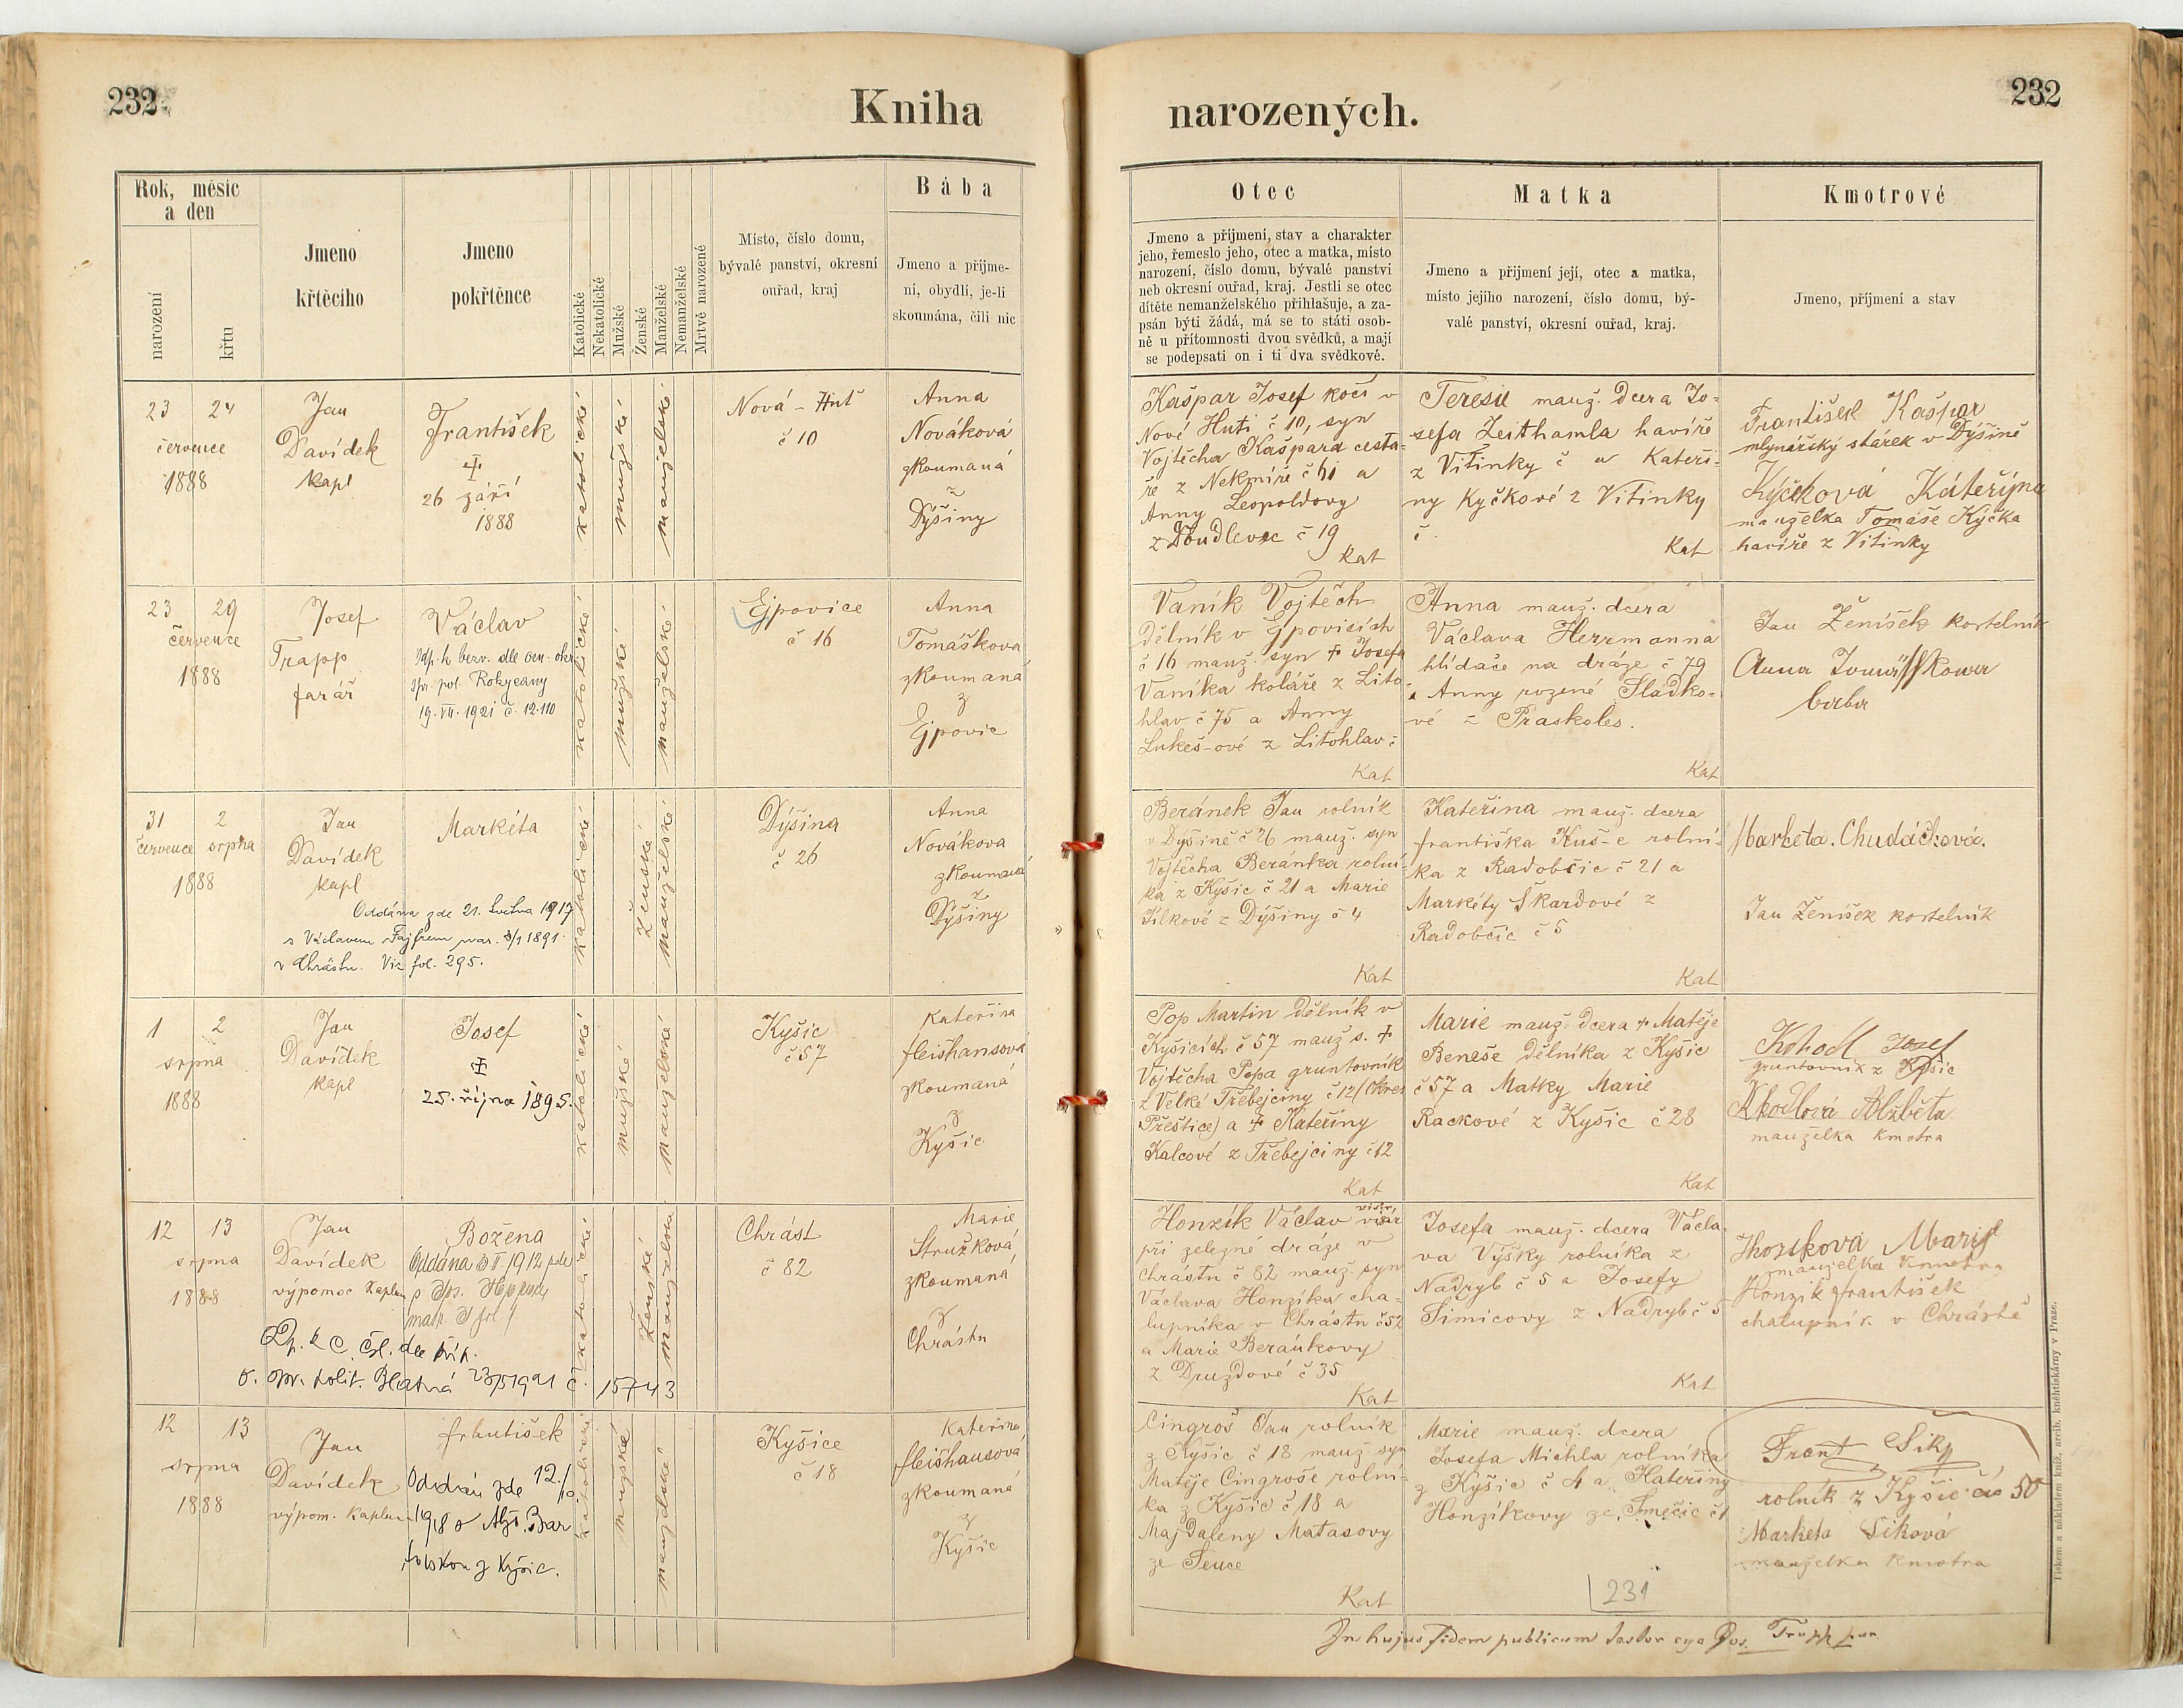 232
Kniha
narozených.
232
Rok, měsíc
a den
narození
křtu
Jmeno
křtěcího
Jmeno
pokřtěnce
Katolické
Nekatolické
Mužské
Ženské
Manželské
Nemanželské
Mrtvě narozené
Místo, číslo domu,
bývalé panství, okresní
ouřad, kraj
Bába
Jmeno a přijme-
ní, obydlí, je-li
skoumána, čili nic
Otec
Jmeno a příjmení, stav a charakter
jeho, řemeslo jeho, otec a matka, místo
narození, číslo domu, bývalé panství
neb okresní ouřad, kraj. Jestli se otec
dítěte nemanželského přihlašuje, a za-
psán býti žádá, má se to státi osob-
ně u přítomnosti dvou svědků, a mají
se podepsati on i ti dva svědkové.
Matka
Jmeno a přijmení její, otec a matka,
místo jejího narození, číslo domu, bý-
valé panství, okresní ouřad, kraj.
Kmotrové
Jmeno, příjmení a stav
23 24
července
1888
Jan
Davídek
kapl
František
26 září
1888
katolické
mužské
manželské
Nová-Huť
č 10
Anna
Nováková
zkoumaná
z
Dýšiny
Kašpar Josef kočí v
Nové Huti č 10, syn
Vojtěcha Kašpara cesta-
ře z Nekmíře č 51 a
Anny Leopoldovy
z Doudlevec č 19
Kat
Teresie manž. dcera Jo-
sefa Zeithamla havíře
z Vitinky č a Kateři-
ny Kyčkové z Vitinky
č
Kat
František Kašpar
mlynářský stárek v Dýšině
Kýčková Káteřýna
manželka Tomáše Kýčka
havíře z Vitinky
23 29
července
1888
Josef
Trapp
farář
Václav
Odp. k bezv. dle ozn. okr.
spr. pol. Rokycany
19. VII. 1921 č. 12.110
katolické
mužské
manželské
Ejpovice
č 16
Anna
Tomáškova
zkoumaná
z
Ejpovic
Vaník Vojtěch
Dělník v Ejpovicích
č 16 manž. syn + Josefa
Vaníka koláře z Lito
hlav č 75 a Anny
Lukeš-ové z Litohlav č
Kat
Anna manž. dcera
Václava Herrmanna
hlídače na dráze č 79
a Anny rozené Sladko-
vé z Praskoles.
Kat
Jan Ženíšek kostelník
Anna Tomášskowa
baba
31 2
července srpna
1888
Jan
Davídek
kapl
Markéta
Oddána zde 21. května 1917
s Václavem Fajfrem nar. 3/1 1891.
v Chrástu. Viz fol. 295.
katolické
Ženské
manželské
Dýšina
č 26
Anna
Novákova
zkoumaná
z
Dýšiny
Beránek Jan rolník
v Dýšině č 26 manž. syn
Vojtěcha Beránka rolní-
ka z Kyšic č 21 a Marie
Tilkové z Dýšiny č 4
Kat
Kateřina manž. dcera
františka Kuš-e rolní-
ka z Radobčic č 21 a
Markéty Škardové z
Radobčic č 5
Kat
Marketa. Chudáčková.
Jan Ženíšek kostelník
1 2
srpna
1888
Jan
Davídek
kapl
Josef
25. října 1895.
katolické
mužské
manželské
Kyšic
č 57
Kateřina
fleišhansová
zkoumaná
z
Kyšic
Pop Martin Dělník v
Kyšicích č 57 manž s. +
Vojtěcha Popa gruntovník
z Velké Třebejciny č 12 (Okres
Přeštice) a + Kateřiny
Kalcové z Třebejciny č 12
Kat
Marie manž. Dcera + Matěje
Beneše Dělníka z Kyšic
č 57 a Matky Marie
Rackové z Kyšic č 28
Kat
Josef
gruntovník z Kyšic
Alžběta
manželka kmotra
12 13
srpna
1888
Jan
Davídek
výpomoc kaplan
Božena
katolické
Ženské
manželské
Chrást
č 82
Marie
Stružková
zkoumaná
z
Chrástu
Honzík Václav
při železné dráze v
Chrástu č 82 manž. syn
Václava Honzíka cha-
lupníka v Chrástu č 52
a Marie Beránkovy
z Druzdové č 35
Kat
Josefa manž. dcera Václa-
va Vyšky rolníka z
Nadryb č 5 a Josefy
Šimicovy z Nadryb č 5
Kat
manželka kmotra
Honzik František
chalupník v Chrástě
12 13
srpna
1888
Jan
Davídek
výpom. kaplan
františek
Oddán zde 12./10.
1918 s Alž. Bar
toškou z Kyšic.
katolické
mužské
manželské
Kyšice
č 18
Kateřina
fleišhansová
zkoumaná
z
Kyšic
Cingroš Jan rolník
z Kyšic č 18 manž syn
Matěje Cingroše rolní-
ka z Kyšic č 18 a
Majdaleny Matasovy
ze Sence
Kat
Marie manž. dcera
Josefa Michla rolníka
z Kyšic č 4 a Kateřiny
Honzíkovy ze Smečic č 1
Frant Šiky
rolník z Kyšic čís 50
Marketa Siková
manželka kmotra
231
In hujus fidem publicam testor ego Jos. Trapp par
Tiskem a nákladem kníž. arcib. knihtiskárny v Praze.